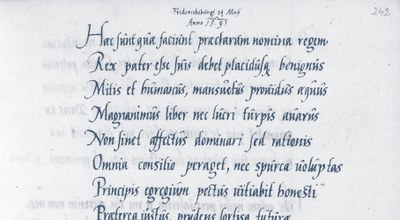 242
Friderichsburgi 19 Maij
Anno 1595
Hæc sunt quæ faciunt præclarum nomina regem.
Rex pater esse suis debet placidusq̃ benignus
Mitis et humanus, mansuetus providus æquus
Magnanimus liber nec lucri turpis avarus
Non sinet affectus dominari sed rationis
Omnia consilio peraget, nec spurca voluptas
Principis egregium pectus vitiabit honesti
Præterea iustus, prudens